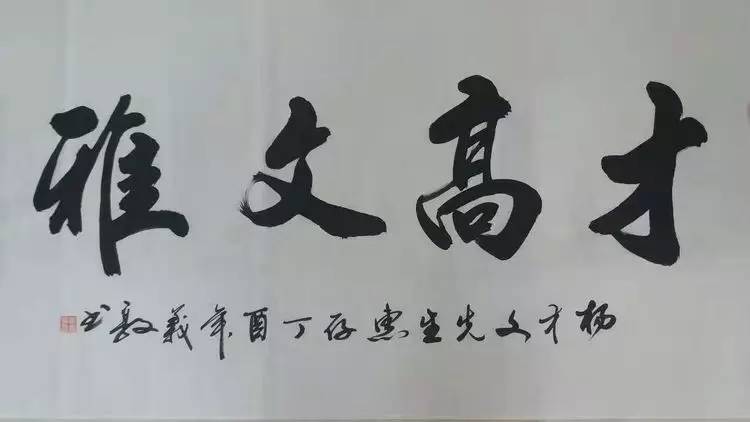 才高文雅
杨才文先生惠存丁酉年义敦书